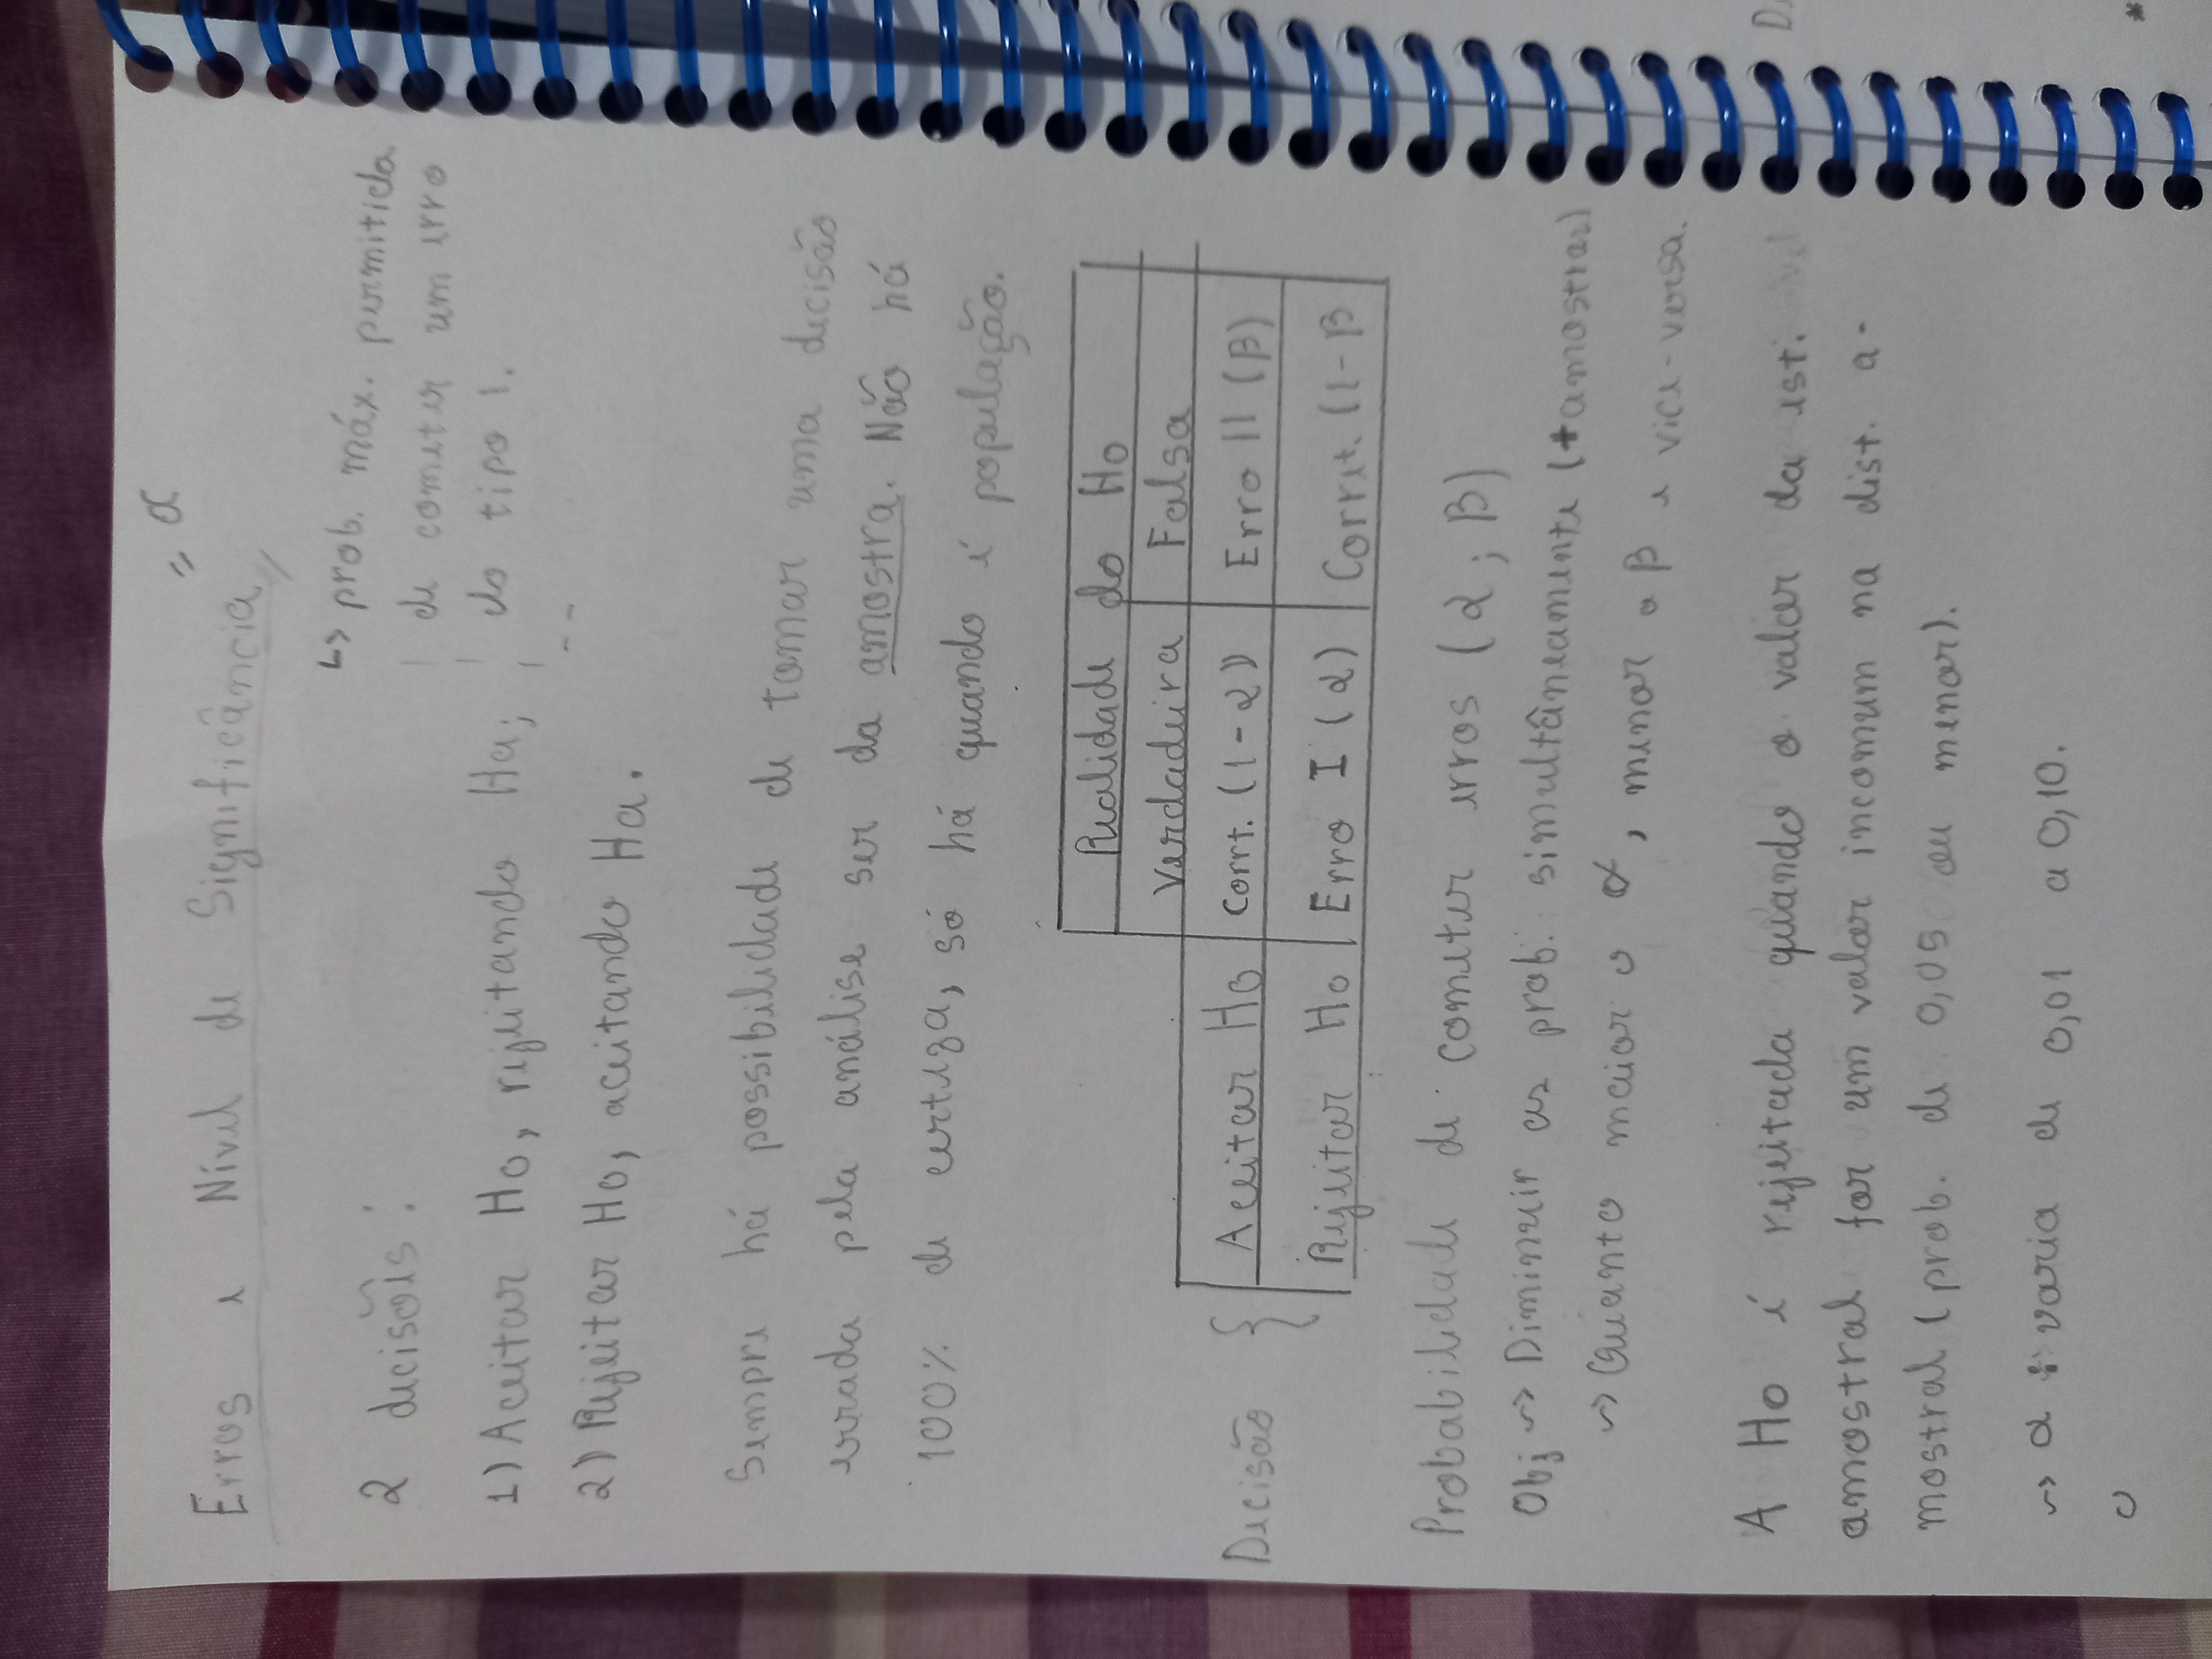 Erros e Nível de Significância = α
↳ prob. máx. permitida
de cometer um erro
do tipo 1.
2 decisões:
1) Aceitar Ho, rejeitando Ha;
2) Rejeitar Ho, aceitando Ha.
Sempre há possibilidade de tomar uma decisão
errada pela análise ser da amostra. Não há
100% de certeza, só há quando é população.
Realidade do Ho
Verdadeira Falsa
Decisão { Aceitar Ho Corrt. (1-α) Erro II (β)
Rejeitar Ho Erro I (α) Corret. (1-β
Probabilidade de cometer erros (α; β)
Obj ~> Diminuir as prob. simultâneamente (+amostras)
~> Quanto maior o α, menor o β e vice-versa.
A Ho é rejeitada quando o valor da est.
amostral for um valor incomum na dist. a-
mostral (prob. de 0,05 ou menor).
~> α : varia de 0,01 a 0,10.